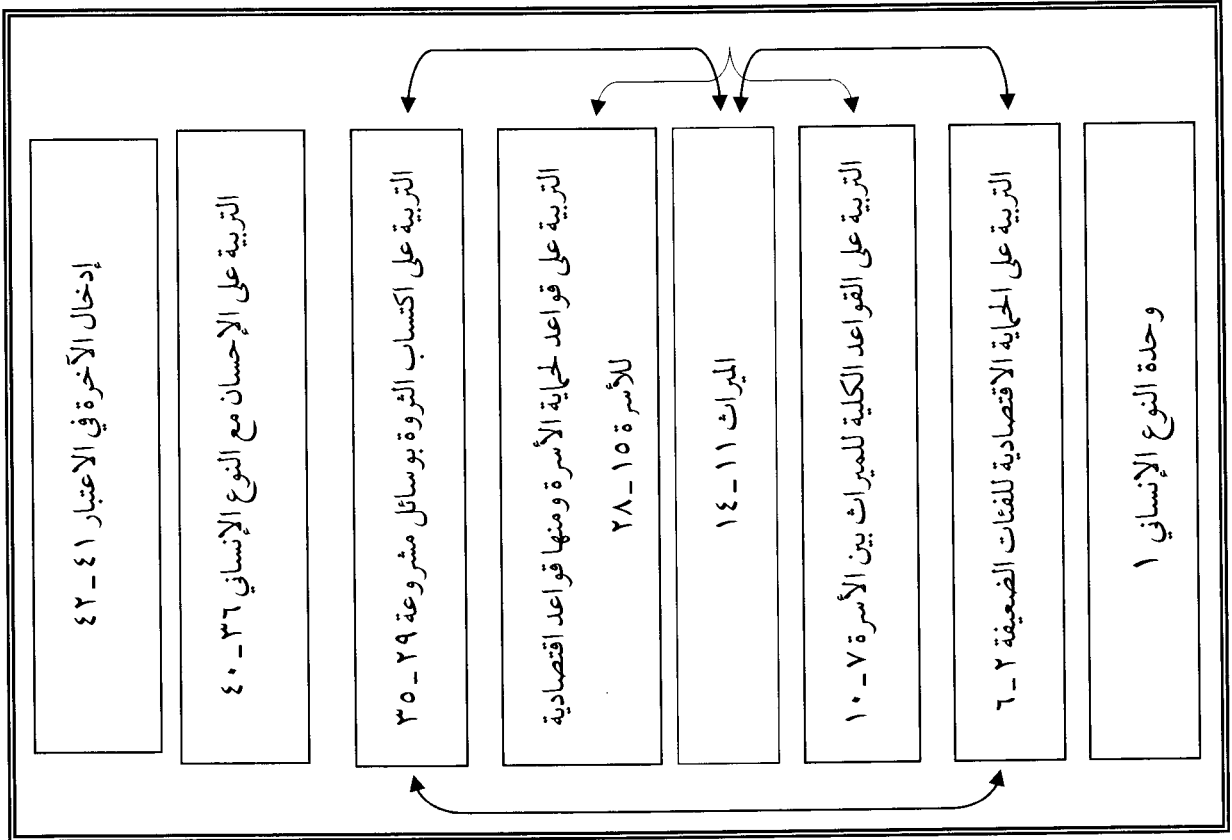 وحدة النوع الإنساني ١
التربية على الحماية الاقتصادية للفئات الضعيفة ٢ـ٦
التربية على القواعد الكلية للميراث بين الأسرة ٧ـ١٠
الميراث ١١ـ١٤
التربية على قواعد لحماية الأسرة ومنها قواعد اقتصادية
للأسرة ١٥ـ٢٨
التربية على اكتساب الثروة بوسائل مشروعة ٢٩ـ٣٥
التربية على الإحسان مع النوع الإنساني ٣٦ـ٤٠
إدخال الآخرة في الاعتبار ٤١ـ٤٢